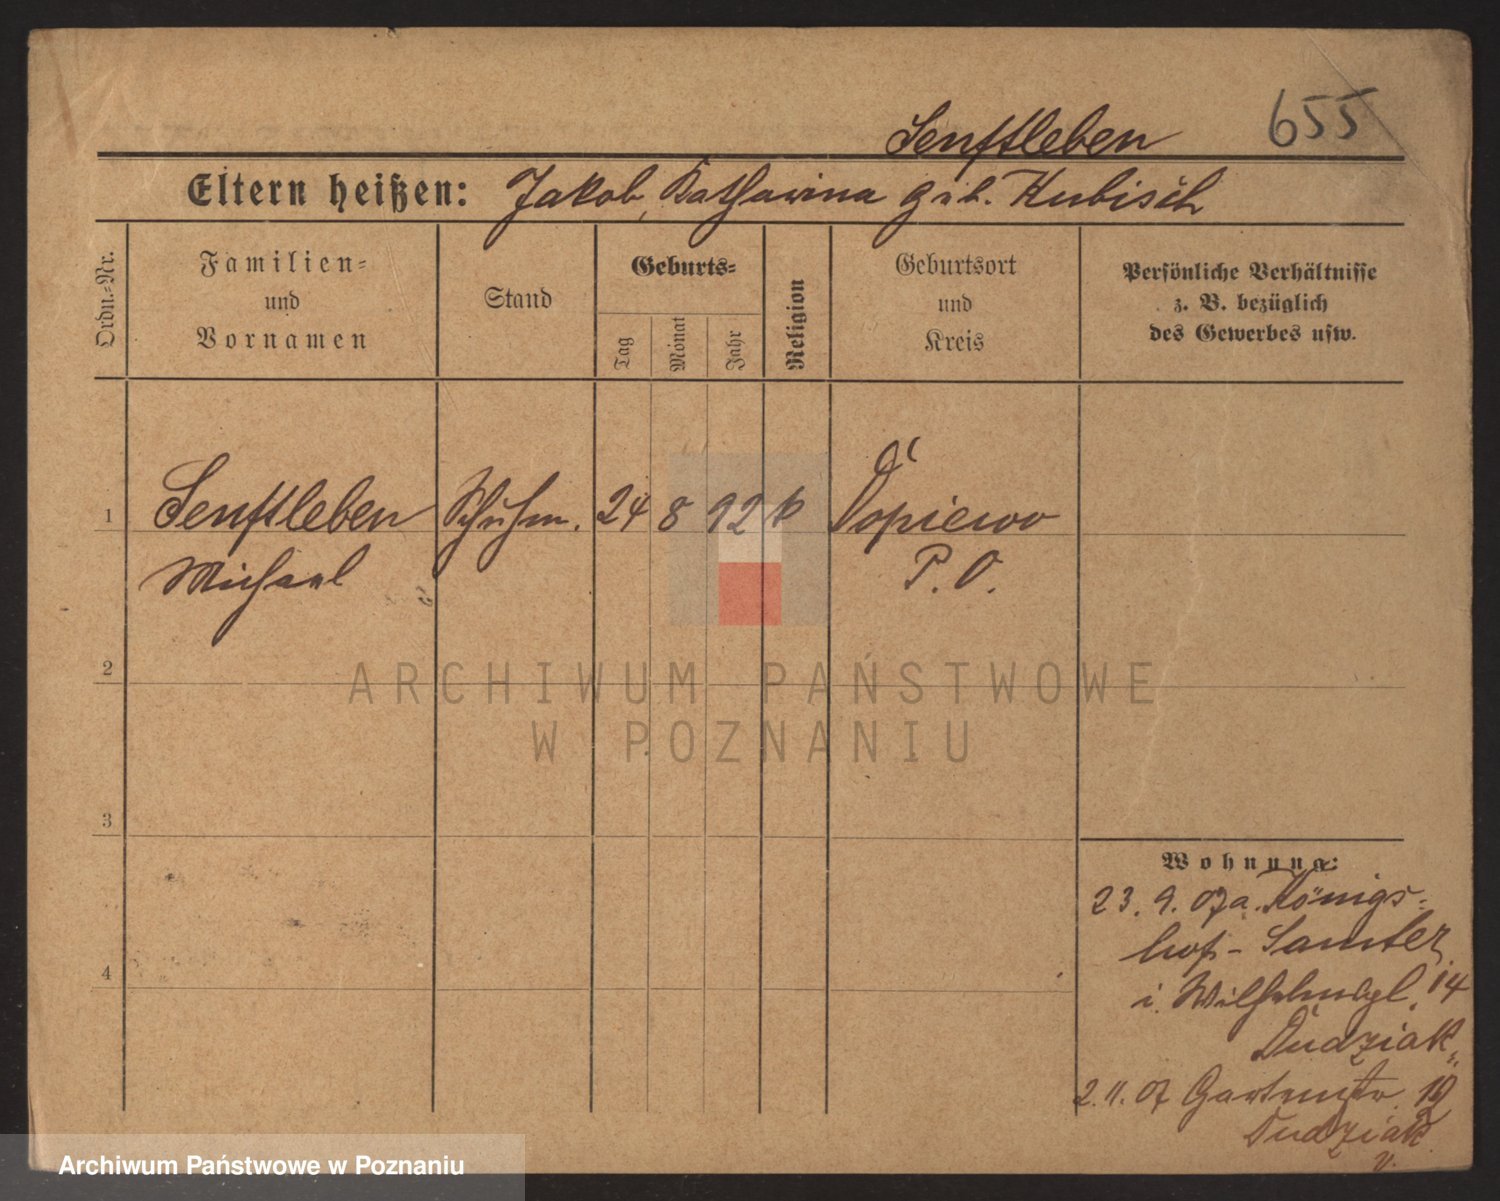 655
Senftleben
Eltern heißen: Jakob, Katharina geb. Kubisch
Ordn.-Nr.
Familien-
und
Vornamen
Stand
Geburts-
Tag
Monat
Jahr
Religion
Geburtsort
und
Kreis
Persönliche Verhältnisse
z. B. bezüglich
des Gewerbes usw.
1 Senftleben Schuhm. 24 8 92 k Dopiewo
Michael P. O.
2
3
4
Wohnung:
23. 9. 07 a. Königs-
hof - Samter
i. Wilhelmspl. 14
Dudziak
2. 11. 07 Gartenstr. 19
Dudziak
v.
ARCHIWUM PAŃSTWOWE
W POZNANIU
Archiwum Państwowe w Poznaniu